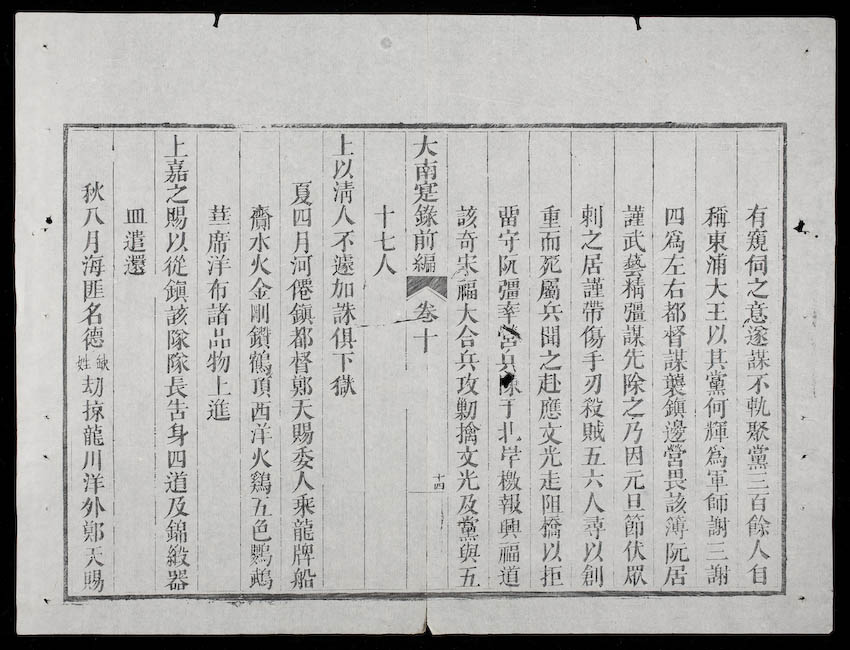 有窺伺之意遂謀不軌聚黨三百餘人自
稱東浦大王以其黨何輝爲軍師謝三謝
四爲左右都督謀襲鎮邊營畏該簿阮居
謹武藝精彊謀先除之乃因元旦節伏眾
刺之居謹帶傷手刃殺賊五六人尋以創
重而死屬兵聞之赴應文光走阻橋以拒
畱守阮彊率營兵陳于北岸檄報興福道
該奇宋福大合兵攻勦擒文光及黨與五
大南寔錄前編 卷十 十四
十七人
上以清人不遽加誅俱下獄
夏四月河僊鎮都督鄭天賜委人乘龍牌船
齎水火金剛鑽鶴頂西洋火鷄五色鸚鵡
莖席洋布諸品物上進
上嘉之賜以從鎮該隊隊長告身四道及錦緞器
皿遣還
秋八月海匪名德缺姓劫掠龍川洋外鄭天賜